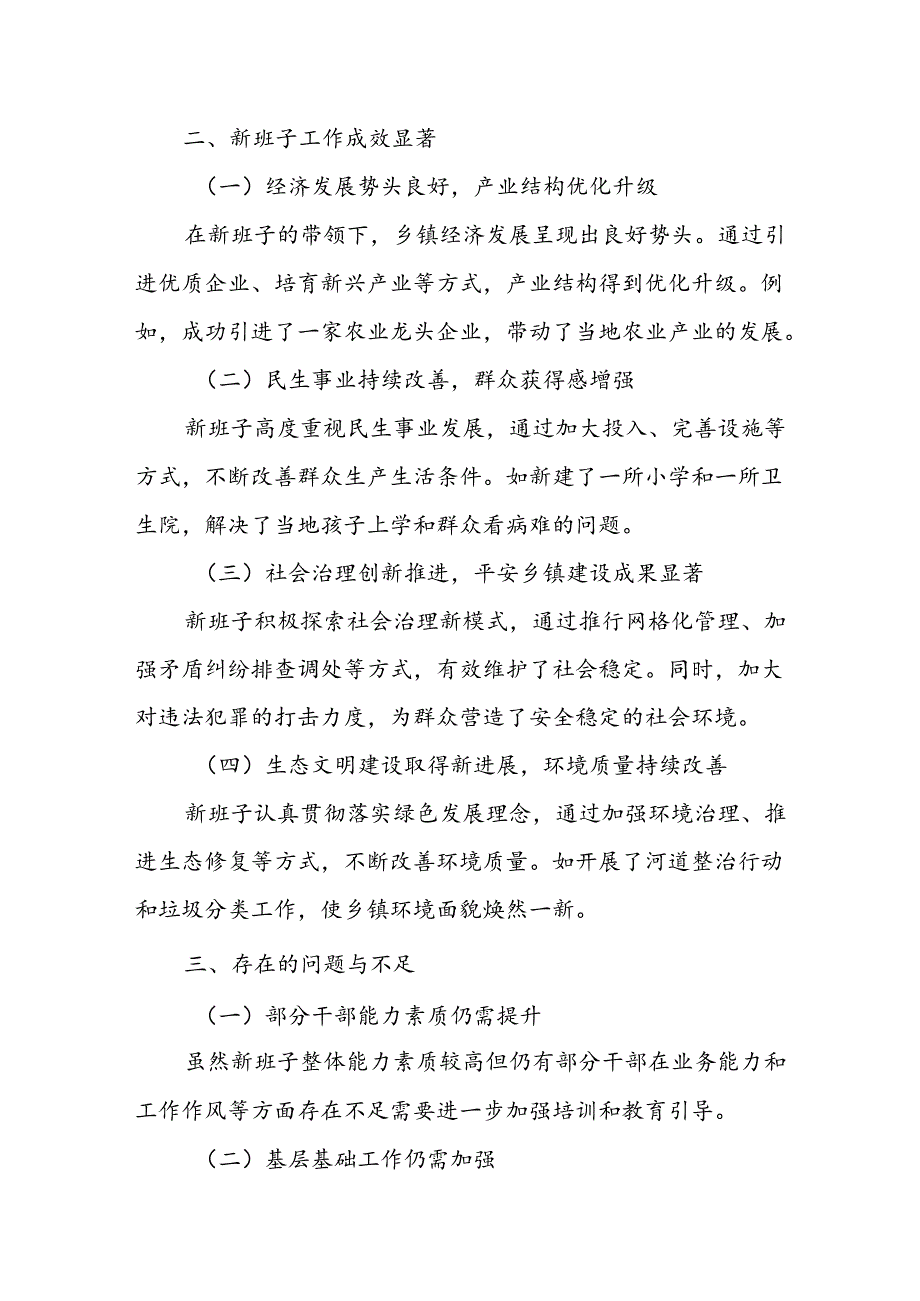 二、新班子工作成效显著
（一）经济发展势头良好，产业结构优化升级
在新班子的带领下，乡镇经济发展呈现出良好势头。通过引
进优质企业、培育新兴产业等方式，产业结构得到优化升级。例
如，成功引进了一家农业龙头企业，带动了当地农业产业的发展。
（二）民生事业持续改善，群众获得感增强
新班子高度重视民生事业发展，通过加大投入、完善设施等
方式，不断改善群众生产生活条件。如新建了一所小学和一所卫
生院，解决了当地孩子上学和群众看病难的问题。
（三）社会治理创新推进，平安乡镇建设成果显著
新班子积极探索社会治理新模式，通过推行网格化管理、加
强矛盾纠纷排查调处等方式，有效维护了社会稳定。同时，加大
对违法犯罪的打击力度，为群众营造了安全稳定的社会环境。
（四）生态文明建设取得新进展，环境质量持续改善
新班子认真贯彻落实绿色发展理念，通过加强环境治理、推
进生态修复等方式，不断改善环境质量。如开展了河道整治行动
和垃圾分类工作，使乡镇环境面貌焕然一新。
三、存在的问题与不足
（一）部分干部能力素质仍需提升
虽然新班子整体能力素质较高但仍有部分干部在业务能力和
工作作风等方面存在不足需要进一步加强培训和教育引导。
（二）基层基础工作仍需加强